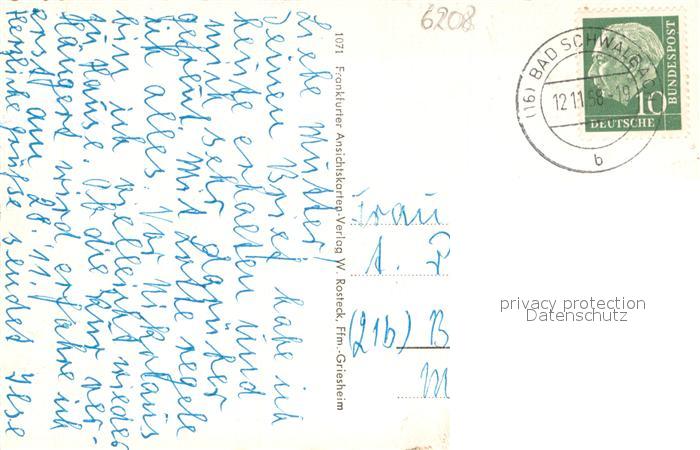 Liebe Mutter!
Deinen Brief habe ich
heute erhalten und
mich sehr darüber
gefreut. Mit Lotte regele
ich alles. Vor Nikolaus
bin ich vielleicht wieder
zu Hause. Ob die Kur ver-
längert wird, erfahre ich
erst am 20. 11.
Herzliche Grüße sendet Ilse
1071 Frankfurter Ansichtskarten-Verlag W. Rosteck, Ffm.-Griesheim
6208
(16) BAD SCHWALBACH
12.11.58.-19
b
10
DEUTSCHE
BUNDESPOST
Frau
A. P
(21b) B
M
privacy protection
Datenschutz